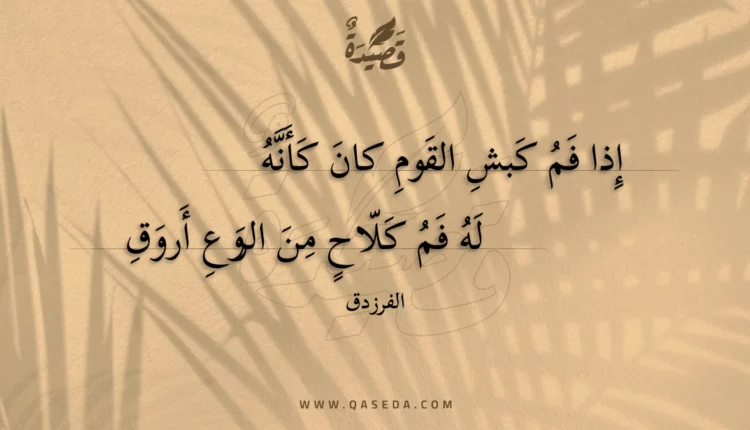 قَصِيْدَةٌ
إِذا فَمُ كَبشِ القَومِ كانَ كَأَنَّهُ
لَهُ فَمُ كَلّاحٍ مِنَ الوَعِ أَروَقِ
الفرزدق
WWW.QASEDA.COM